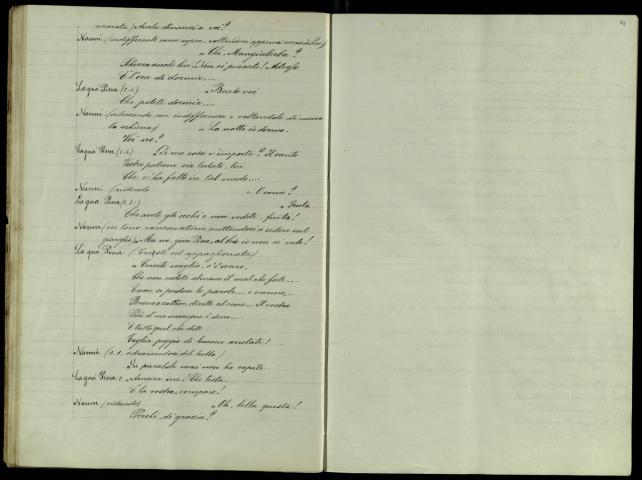 Anche dinanzi a voi?
Nanni (indifferente come sopra, voltandosi appena verso di lei)
"Chi. Mangialerba?
Scherza anche lui! Non ci pensate! Adesso
È l'ora di dormir....
La gná Pina (c.s.) "Beato voi
Che potete dormir....
Nanni (sbadigliando con indifferenza e voltandole di nuovo
la schiena) "La notte io dormo.
Voi no?
La gná Pina (c.s.) Di me cosa v'importa? Il santo
Vostro patrono, sia lodato, lui
Che v'ha fatto in tal modo....
Nanni (ridendo "O come?
La gná Pina (c.s.) "Senza
Che avete gli occhi e non vedete,
Nanni (in tono canzonatorio, mettendosi a sedere sul
giaciglio) "Ma no, gná Pina, al buio io non ci vedo!
La gná Pina (ed appassionata)
"Tanto meglio, s'è scuro,
Che non vedete almeno il mal che fate...
Cuore si perdon le parole.... e vanno,
Buone o cattive, diritte al cuore... Il vostro
Più d'un macigno è duro...
E tutto quel che dite
Taglia peggio di lamine arrotate!
Nanni (c.s. sdraiandosi del tutto)
In parabole mai non ho capito.
La gná Pina: Amara me! Che testa
È la vostra, compare!
Nanni (ridendo) "Oh, bella questa!
Perchè, di grazia?